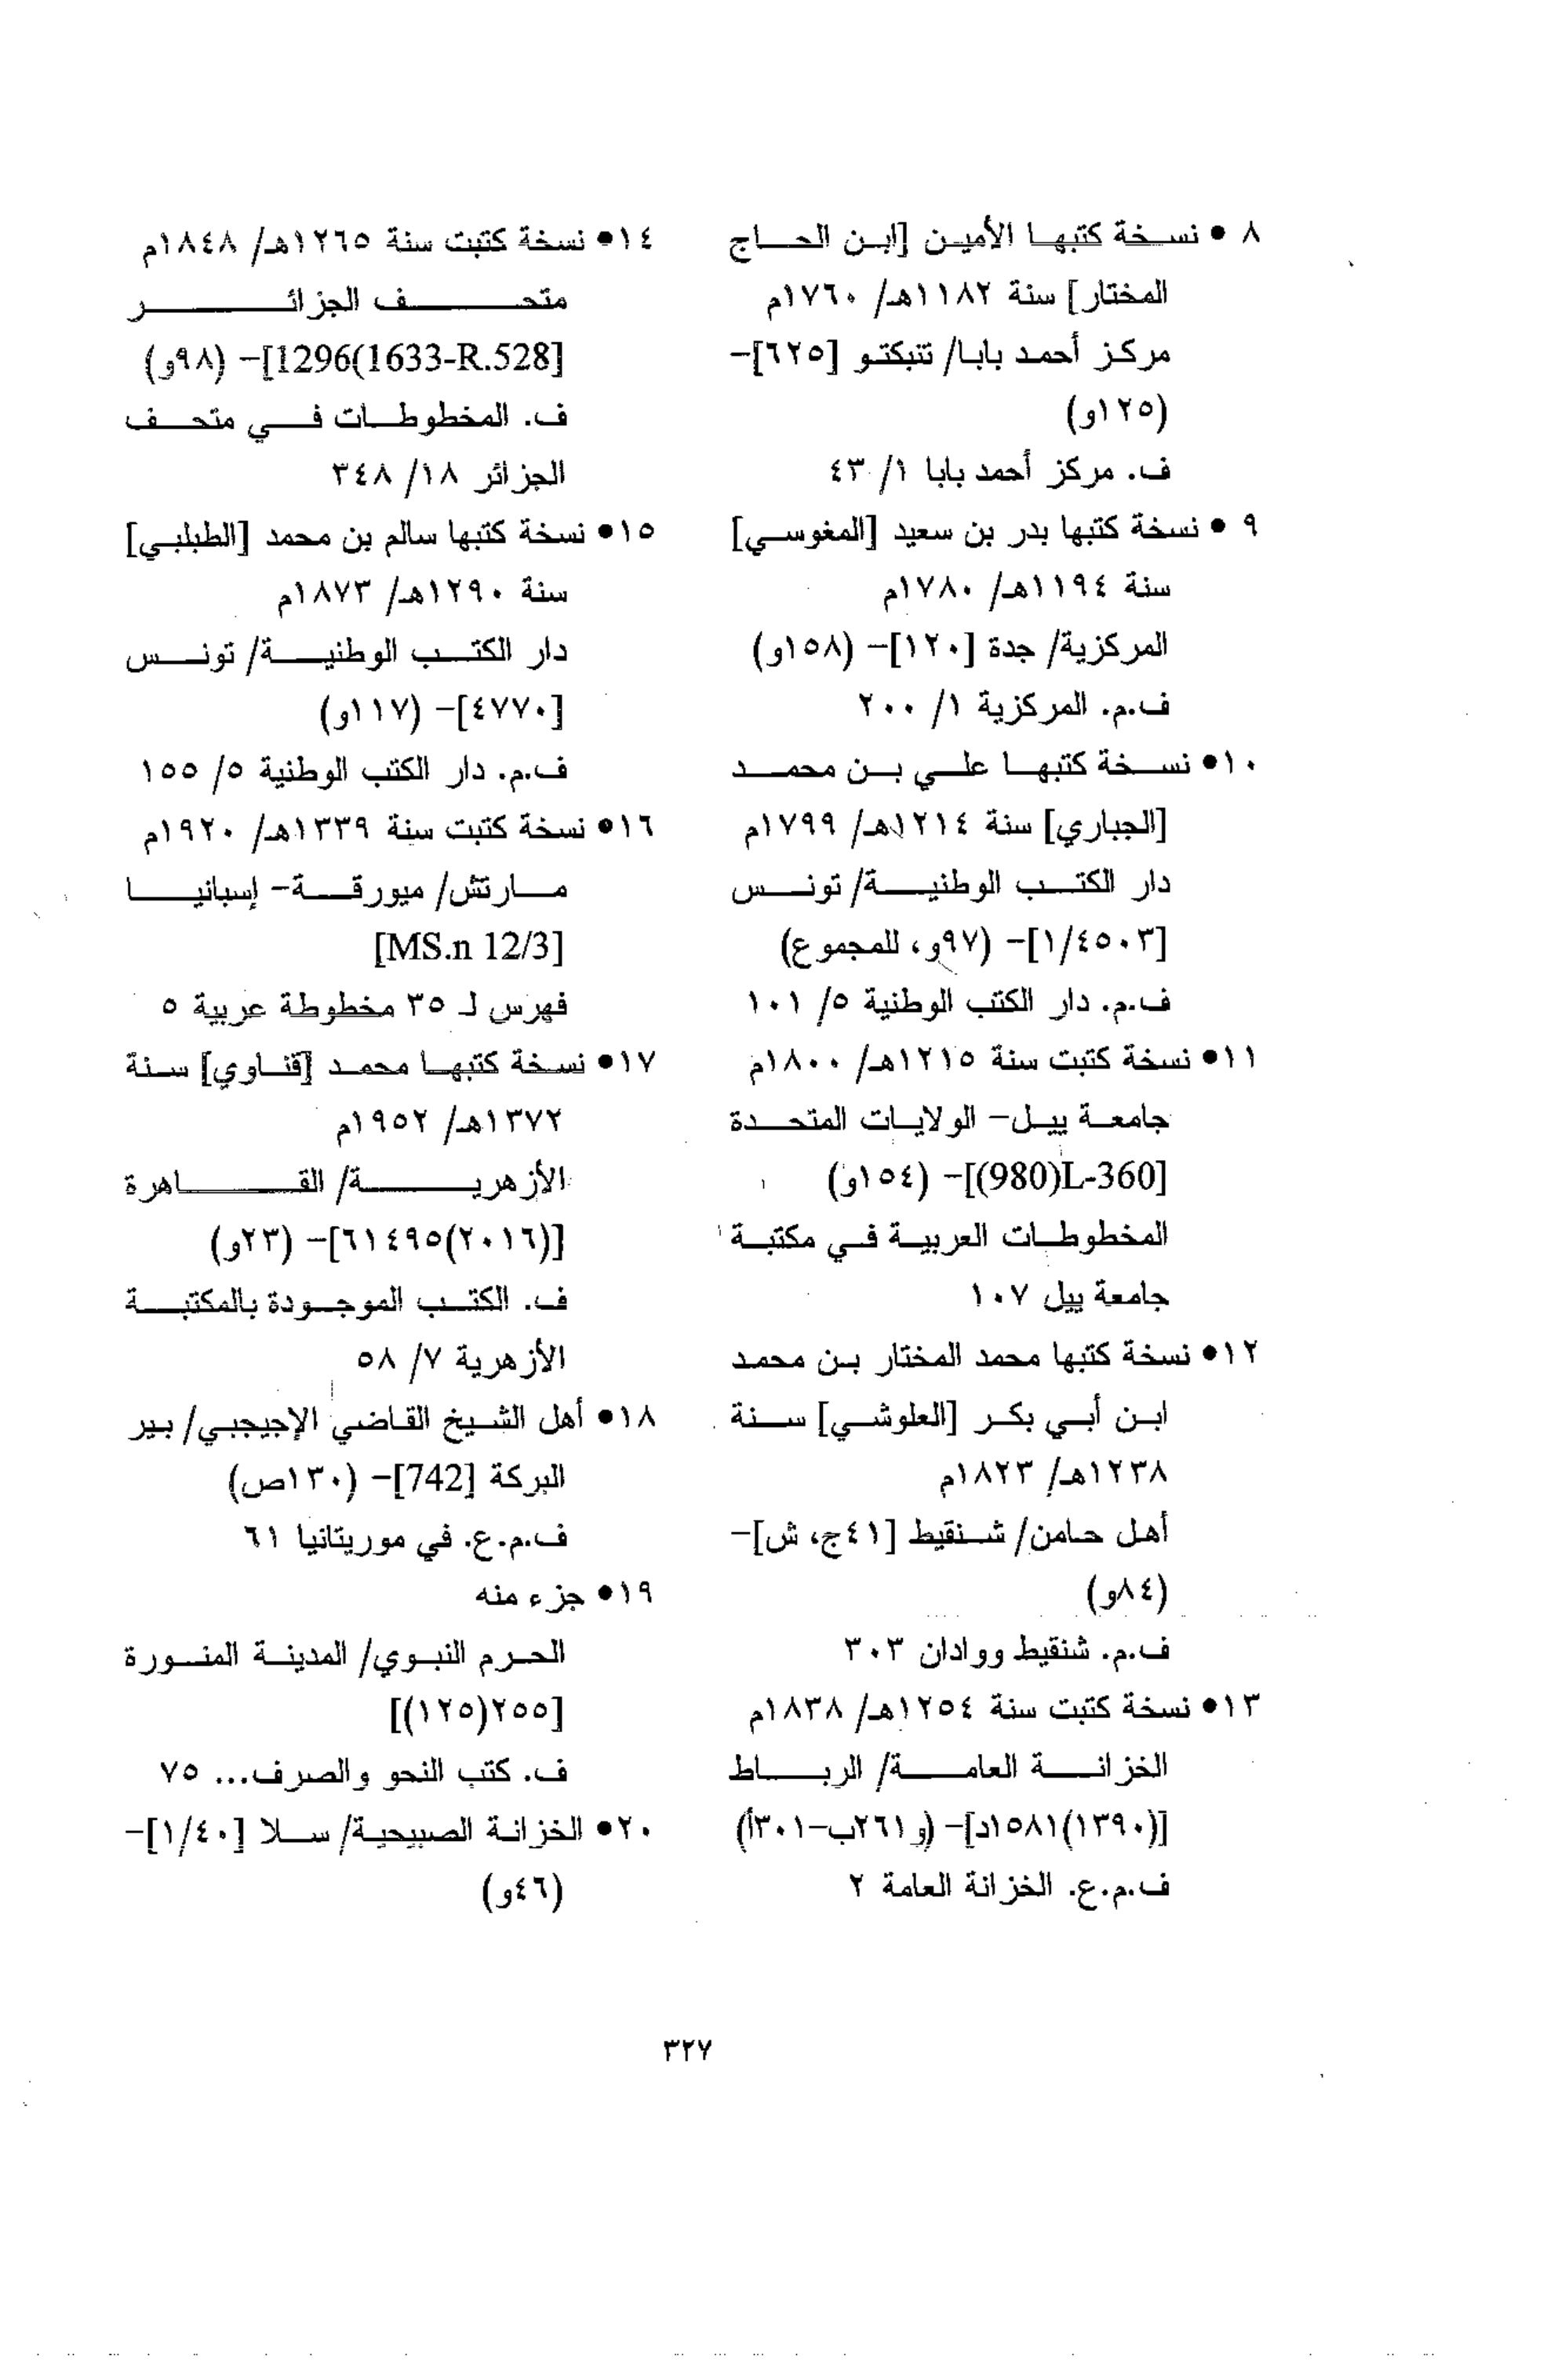 ٨ • نسخة كتبها الأمين [ابن الحاج
المختار] سنة ١١٨٢هـ/ ١٧٦٠م
مركز أحمد بابا/ تنبكتو [٦٢٥]–
(١٢٥و)
ف. مركز أحمد بابا ١/ ٤٣
٩ • نسخة كتبها بدر بن سعيد [المغوسي]
سنة ١١٩٤هـ/ ١٧٨٠م
المركزية/ جدة [١٢٠]– (١٥٨و)
ف.م. المركزية ١/ ٢٠٠
١٠• نسخة كتبها علي بن محمد
[الجباري] سنة ١٢١٤هـ/ ١٧٩٩م
دار الكتب الوطنية/ تونس
[١/٤٥٠٣]– (٩٧و، للمجموع)
ف.م. دار الكتب الوطنية ٥/ ١٠١
١١• نسخة كتبت سنة ١٢١٥هـ/ ١٨٠٠م
جامعة ييل– الولايات المتحدة
[L-360(980)]– (١٥٤و)
المخطوطات العربية في مكتبة
جامعة ييل ١٠٧
١٢• نسخة كتبها محمد المختار بن محمد
ابن أبي بكر [العلوشي] سنة
١٢٣٨هـ/ ١٨٢٣م
أهل حامن/ شنقيط [٤١ج، ش]–
(٨٤و)
ف.م. شنقيط ووادان ٣٠٣
١٣• نسخة كتبت سنة ١٢٥٤هـ/ ١٨٣٨م
الخزانة العامة/ الرباط
[(١٣٩٠)١٥٨١د]– (و٢٦١ب–٣٠١أ)
ف.م.ع. الخزانة العامة ٢
١٤• نسخة كتبت سنة ١٢٦٥هـ/ ١٨٤٨م
متحف الجزائر
[1296(1633-R.528]– (٩٨و)
ف. المخطوطات في متحف
الجزائر ١٨/ ٣٤٨
١٥• نسخة كتبها سالم بن محمد [الطبلبي]
سنة ١٢٩٠هـ/ ١٨٧٣م
دار الكتب الوطنية/ تونس
[٤٧٧٠]– (١١٧و)
ف.م. دار الكتب الوطنية ٥/ ١٥٥
١٦• نسخة كتبت سنة ١٣٣٩هـ/ ١٩٢٠م
مارتش/ ميورقة– إسبانيا
[MS.n 12/3]
فهرس لـ ٣٥ مخطوطة عربية ٥
١٧• نسخة كتبها محمد [قناوي] سنة
١٣٧٢هـ/ ١٩٥٢م
الأزهرية/ القاهرة
[(٢٠١٦)٦١٤٩٥]– (٢٣و)
ف. الكتب الموجودة بالمكتبة
الأزهرية ٧/ ٥٨
١٨• أهل الشيخ القاضي الإجيجبي/ بير
البركة [742]– (١٣٠ص)
ف.م.ع. في موريتانيا ٦١
١٩• جزء منه
الحرم النبوي/ المدينة المنورة
[٢٥٥(١٢٥)]
ف. كتب النحو والصرف... ٧٥
٢٠• الخزانة الصبيحية/ سلا [١/٤٠]–
(٤٦و)
٣٢٧